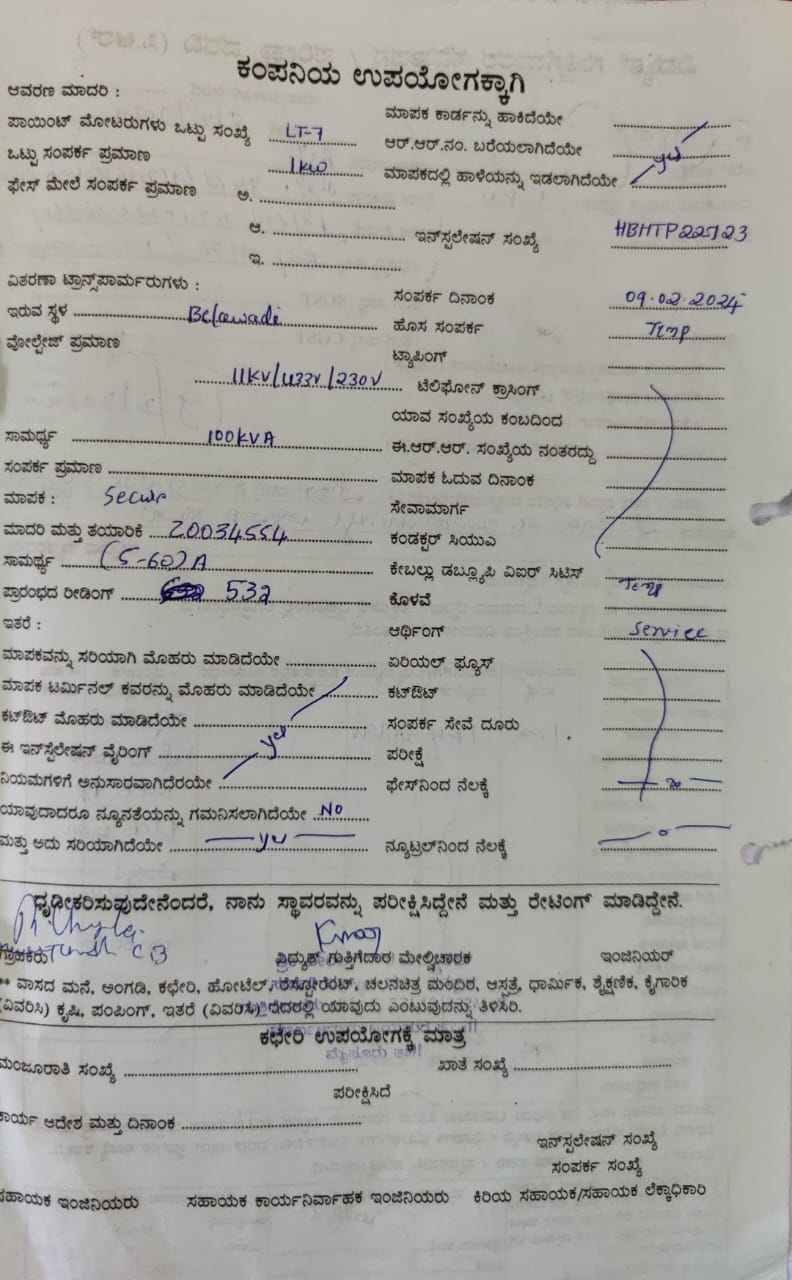 ಕಂಪನಿಯ ಉಪಯೋಗಕ್ಕಾಗಿ
ಆವರಣ ಮಾದರಿ :
ಮಾಪಕ ಕಾರ್ಡನ್ನು ಹಾಕಿದೆಯೇ
ಪಾಯಿಂಟ್ ಮೋಟರುಗಳು ಒಟ್ಟು ಸಂಖ್ಯೆ LT-7
ಆರ್.ಆರ್.ನಂ. ಬರೆಯಲಾಗಿದೆಯೇ
ಒಟ್ಟು ಸಂಪರ್ಕ ಪ್ರಮಾಣ 1kw
ಮಾಪಕದಲ್ಲಿ ಹಾಳೆಯನ್ನು ಇಡಲಾಗಿದೆಯೇ yes
ಫೇಸ್ ಮೇಲೆ ಸಂಪರ್ಕ ಪ್ರಮಾಣ ಅ.
ಆ. ಇನ್‌ಸ್ಪಲೇಷನ್ ಸಂಖ್ಯೆ HBHTP22723
ಇ.
ವಿತರಣಾ ಟ್ರಾನ್ಸ್‌ಪಾರ್ಮರುಗಳು :
ಸಂಪರ್ಕ ದಿನಾಂಕ 09.02.2024
ಇರುವ ಸ್ಥಳ Belawadi
ಹೊಸ ಸಂಪರ್ಕ Temp
ವೋಲ್ಟೇಜ್ ಪ್ರಮಾಣ
ಟ್ಯಾಪಿಂಗ್
11KV/433V/230V ಟೆಲಿಫೋನ್ ಕ್ರಾಸಿಂಗ್
ಯಾವ ಸಂಖ್ಯೆಯ ಕಂಬದಿಂದ
ಸಾಮರ್ಥ್ಯ 100KVA
ಈ.ಆರ್.ಆರ್. ಸಂಖ್ಯೆಯ ನಂತರದ್ದು
ಸಂಪರ್ಕ ಪ್ರಮಾಣ
ಮಾಪಕ ಓದುವ ದಿನಾಂಕ
ಮಾಪಕ : Secure
ಸೇವಾಮಾರ್ಗ
ಮಾದರಿ ಮತ್ತು ತಯಾರಿಕೆ 20034554
ಕಂಡಕ್ಟರ್ ಸಿಯುಎ
ಸಾಮರ್ಥ್ಯ (5-60)A
ಕೇಬಲ್ಲು ಡಬ್ಲ್ಯೂಪಿ ವಿಐರ್ ಸಿಟಿಸ್
ಪ್ರಾರಂಭದ ರೀಡಿಂಗ್ 532
ಕೊಳವೆ Temp
ಇತರೆ :
ಆರ್ಥಿಂಗ್ Service
ಮಾಪಕವನ್ನು ಸರಿಯಾಗಿ ಮೊಹರು ಮಾಡಿದೆಯೇ
ಏರಿಯಲ್ ಫ್ಯೂಸ್
ಮಾಪಕ ಟರ್ಮಿನಲ್ ಕವರನ್ನು ಮೊಹರು ಮಾಡಿದೆಯೇ
ಕಟ್‌ಔಟ್
ಕಟ್‌ಔಟ್ ಮೊಹರು ಮಾಡಿದೆಯೇ
ಸಂಪರ್ಕ ಸೇವೆ ದೂರು
ಈ ಇನ್‌ಸ್ಪೆಲೇಷನ್ ವೈರಿಂಗ್ yes
ಪರೀಕ್ಷೆ
ನಿಯಮಗಳಿಗೆ ಅನುಸಾರವಾಗಿದೆರಯೇ
ಫೇಸ್‌ನಿಂದ ನೆಲಕ್ಕೆ
ಯಾವುದಾದರೂ ನ್ಯೂನತೆಯನ್ನು ಗಮನಿಸಲಾಗಿದೆಯೇ NO
ಮತ್ತು ಅದು ಸರಿಯಾಗಿದೆಯೇ yes
ನ್ಯೂಟ್ರಲ್‌ನಿಂದ ನೆಲಕ್ಕೆ
ಧೃಡೀಕರಿಸುವುದೇನೆಂದರೆ, ನಾನು ಸ್ಥಾವರವನ್ನು ಪರೀಕ್ಷಿಸಿದ್ದೇನೆ ಮತ್ತು ರೇಟಿಂಗ್ ಮಾಡಿದ್ದೇನೆ.
ಗ್ರಾಹಕರು ವಿದ್ಯುತ್ ಗುತ್ತಿಗೆದಾರ ಮೇಲ್ವಿಚಾರಕ ಇಂಜಿನಿಯರ್
** ವಾಸದ ಮನೆ, ಅಂಗಡಿ, ಕಛೇರಿ, ಹೋಟೆಲ್, ರೆಸ್ಟೋರೆರಟ್, ಚಲನಚಿತ್ರ ಮಂದಿರ, ಆಸ್ಪತ್ರೆ, ಧಾರ್ಮಿಕ, ಶೈಕ್ಷಣಿಕ, ಕೈಗಾರಿಕ
(ವಿವರಿಸಿ) ಕೃಷಿ, ಪಂಪಿಂಗ್, ಇತರೆ (ವಿವರಿಸಿ) ಯಾವುದು ಎಂಟುವುದನ್ನು ತಿಳಿಸಿರಿ.
ಕಛೇರಿ ಉಪಯೋಗಕ್ಕೆ ಮಾತ್ರ
ಮಂಜೂರಾತಿ ಸಂಖ್ಯೆ ಖಾತೆ ಸಂಖ್ಯೆ
ಪರೀಕ್ಷಿಸಿದೆ
ಕಾರ್ಯ ಆದೇಶ ಮತ್ತು ದಿನಾಂಕ
ಇನ್‌ಸ್ಪಲೇಷನ್ ಸಂಖ್ಯೆ
ಸಂಪರ್ಕ ಸಂಖ್ಯೆ
ಸಹಾಯಕ ಇಂಜಿನಿಯರು ಸಹಾಯಕ ಕಾರ್ಯನಿರ್ವಾಹಕ ಇಂಜಿನಿಯರು ಕಿರಿಯ ಸಹಾಯಕ/ಸಹಾಯಕ ಲೆಕ್ಕಾಧಿಕಾರಿ